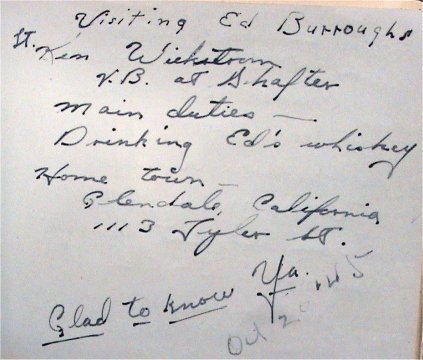 Visiting Ed Burroughs
Lt. Ken Wickstrom
V.B. at Shafter
Main duties —
Drinking Ed's whiskey
Home town —
Glendale, California
1113 Tyler St.
Glad to know Ya.
Oct 2 45